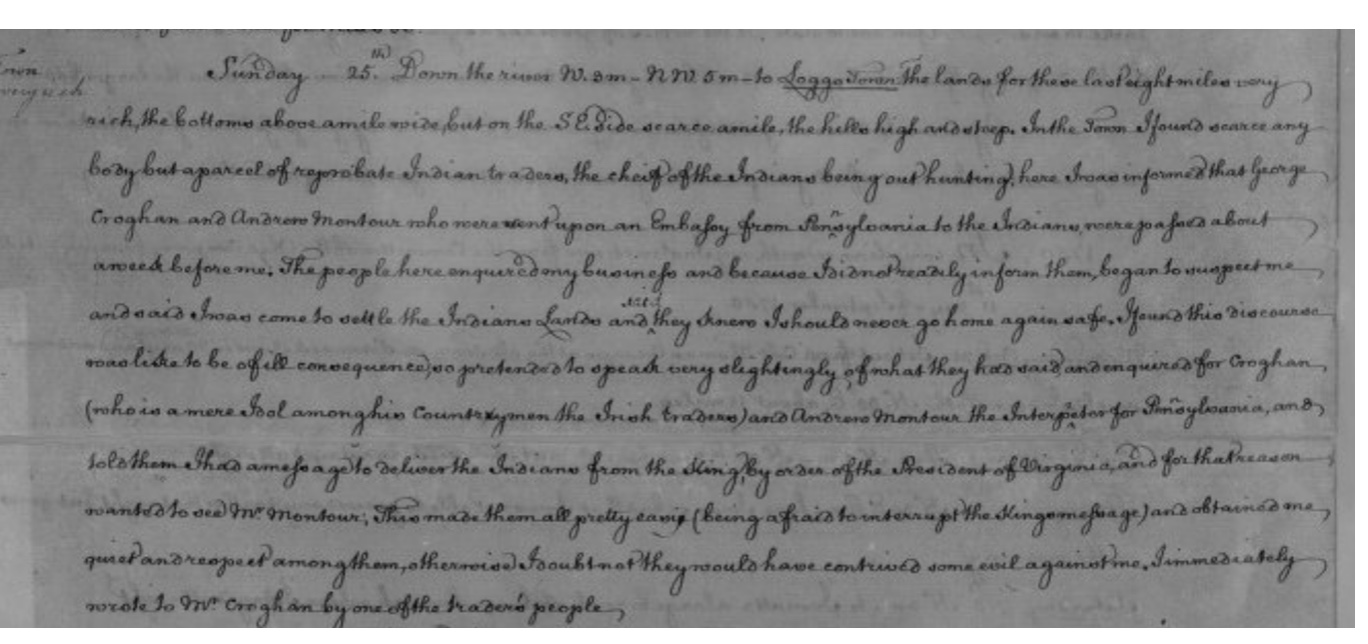 Town
very rich
Sunday 25.th Down the river W. 3 m - N W. 5 m - to Loggs Town The lands for these last eight miles very
rich, the bottoms above a mile wide, but on the S E. side scarce a mile, the hills high and steep. In the Town I found scarce any
body but a parcel of reprobate Indian traders, the cheif of the Indians being out hunting, here I was informed that George
Croghan and Andrew Montour who were sent upon an Embassy from Pensylvania to the Indians, were passed about
a week before me. The people here enquired my business and because I did not readily inform them, began to suspect me
and said I was come to settle the Indians Lands and they knew I should never go home again safe. I found this discourse
was like to be of ill consequence, so pretended to speak very slightingly of what they had said, and enquired for Croghan
(who is a mere Idol among his Countrymen the Irish traders) and Andrew Montour the Interpetor for Pensylvania, and
told them I had a message to deliver the Indians from the King, by order of the President of Virginia, and for that reason
wanted to see Mr Montour; This made them all pretty easy (being afraid to interrupt the Kings message) and obtained me
quiet and respect among them, otherwise I doubt not they would have contrived some evil against me. I immediately
wrote to Mr Croghan by one of the trader's people